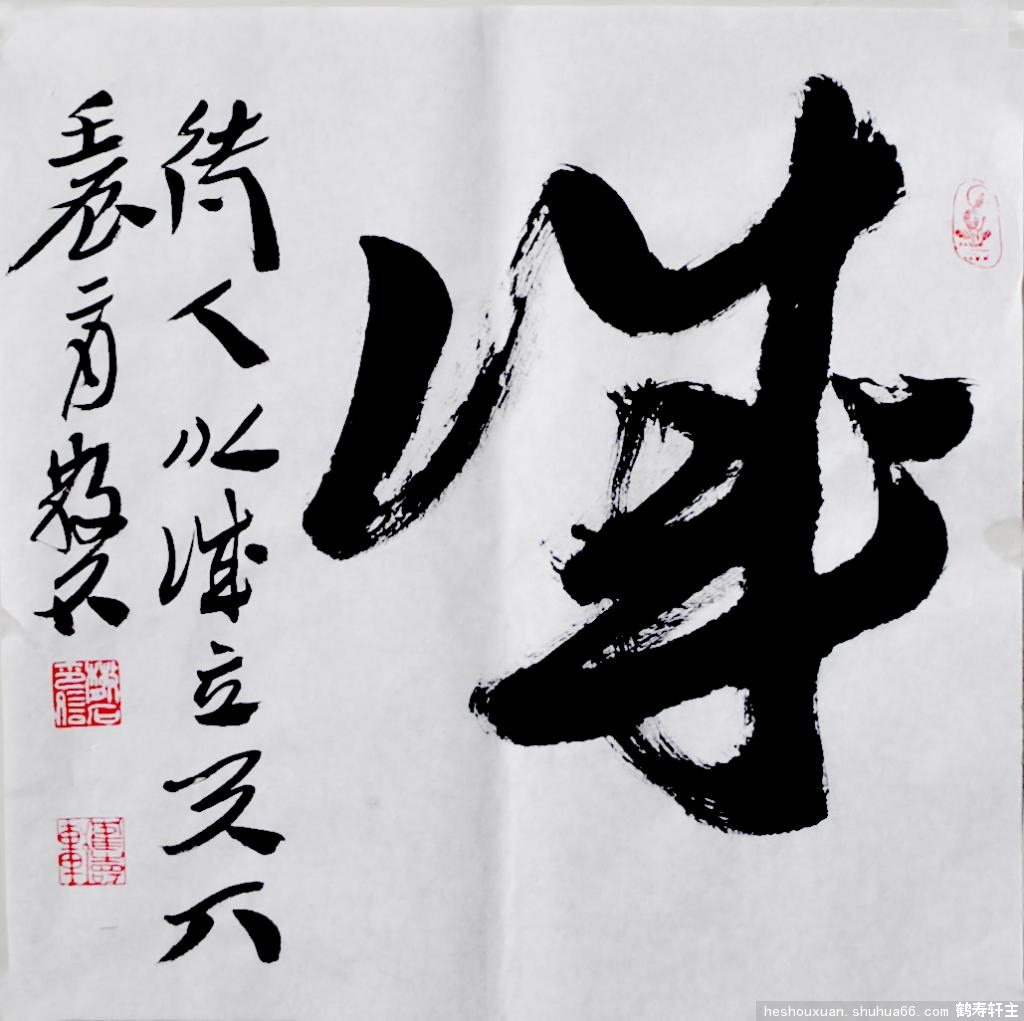 诚
待人以诚立天下
壬辰
heshouxuan.shuhua66.com 鹤寿轩主